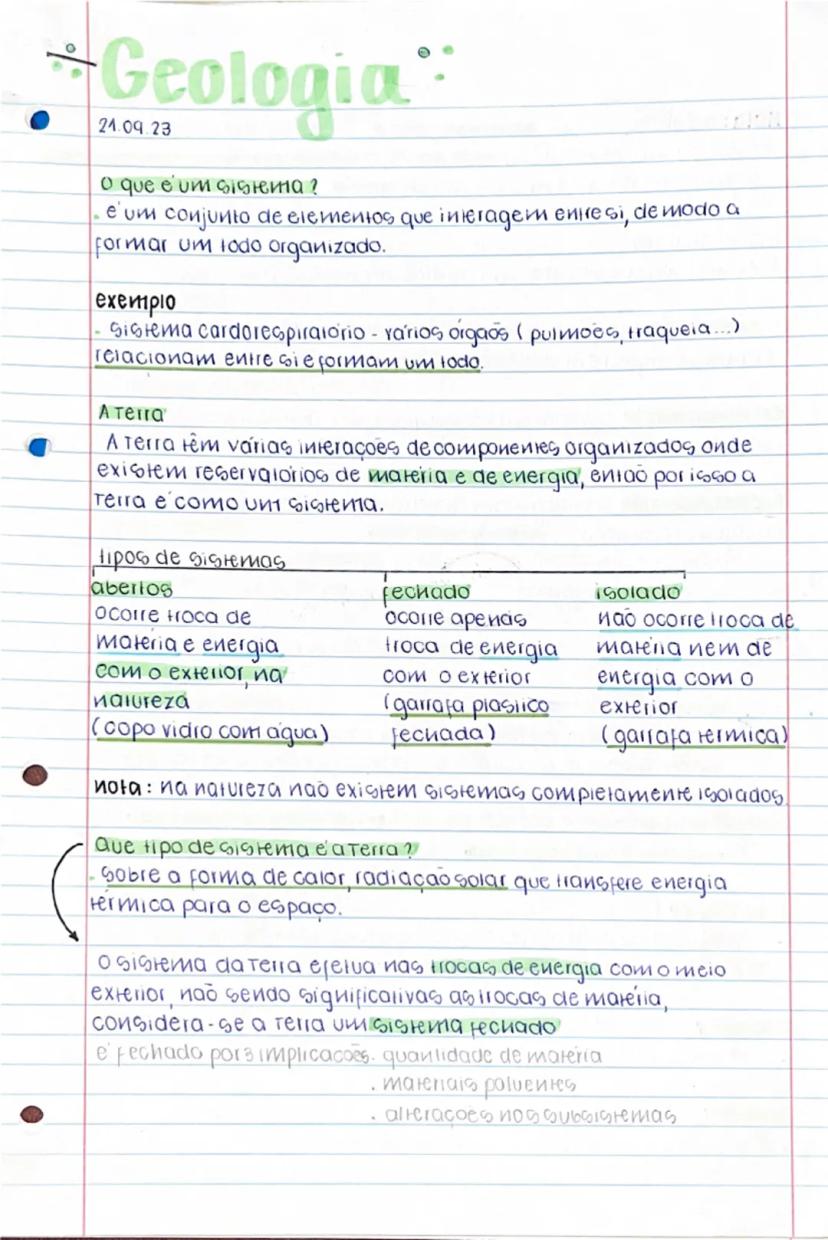 Geologia
21.09.23
O que é um sistema?
. é um conjunto de elementos que interagem entre si, de modo a
formar um todo organizado.
exemplo
. sistema cardorespiratório - vários órgãos (pulmões, traqueia...)
relacionam entre si e formam um todo.
A terra
A terra têm várias interações de componentes organizados onde
existem reservatórios de matéria e de energia, então por isso a
terra é como um sistema.
tipos de sistemas
abertos fechado isolado
ocorre troca de ocorre apenas não ocorre troca de
matéria e energia troca de energia matéria nem de
com o exterior, na com o exterior energia com o
natureza (garrafa plástico exterior
(copo vidro com água) fechada) (garrafa térmica)
nota: na natureza não existem sistemas completamente isolados
Que tipo de sistema é a terra?
. sobre a forma de calor, radiação solar que transfere energia
térmica para o espaço.
O sistema da terra efetua nas trocas de energia com o meio
exterior, não sendo significativas as trocas de matéria,
considera-se a terra um sistema fechado
é fechado por 3 implicações. quantidade de matéria
. materiais poluentes
. alterações nos subsistemas